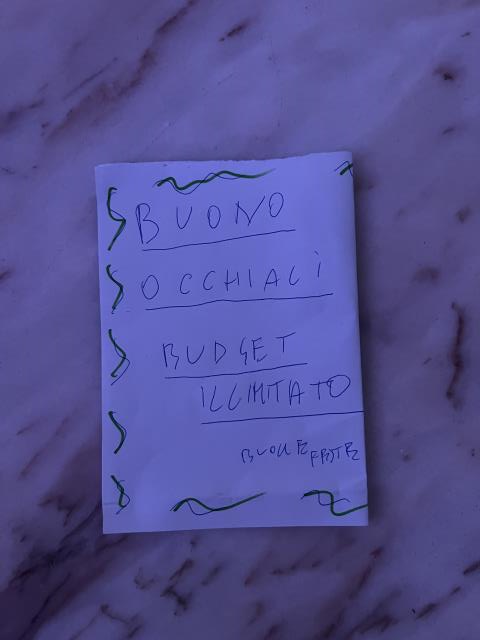 BUONO
OCCHIALI
BUDGET
ILLIMITATO
BUONE
FESTE